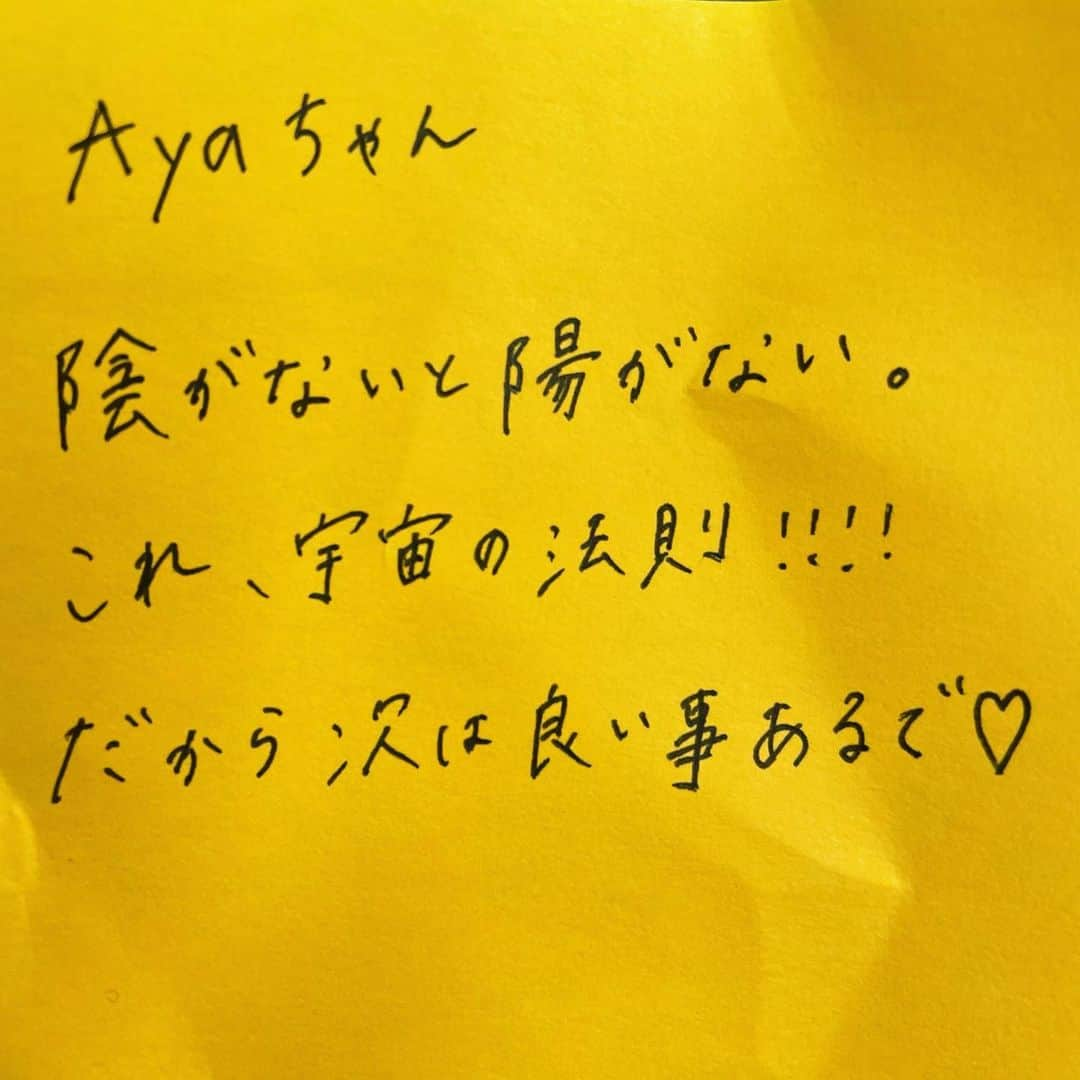 Ayaちゃん
陰がないと陽がない。
これ、宇宙の法則!!!!
だから次は良い事あるで♡